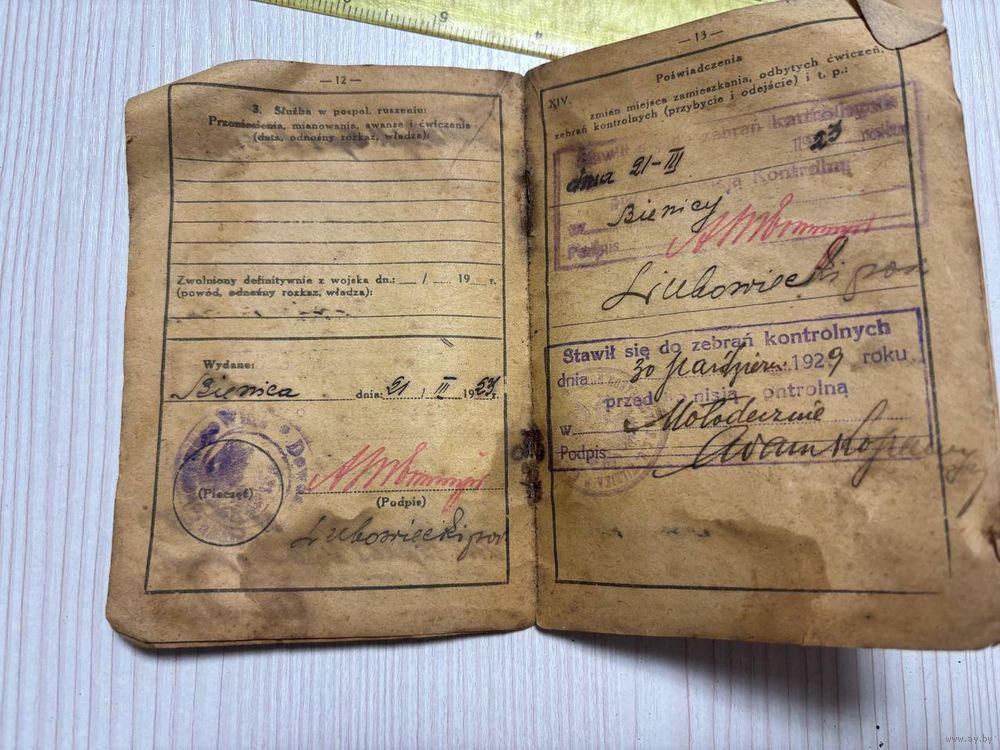 —12—
3. Służba w pospol. ruszeniu:
Przeniesienia, mianowania, awanse i ćwiczenia
(data, odnośny rozkaz, władza):
Zwolniony definitywnie z wojska dn.: / 19 r.
(powód, odnośny rozkaz, władza):
Wydane:
Bienica dnia: 21 / III 1923 r.
(Pieczęć)
(Podpis)
Luhowiecki por
—13—
Poświadczenia
XIV. zmian miejsca zamieszkania, odbytych ćwiczeń,
zebrań kontrolnych (przybycie i odejście) i t. p.:
Stawił zebrań kontrolnych
dnia 21-III 1923 roku
Kontrolną
w Bienicy
Podpis
Luhowiecki por
Stawił się do zebrań kontrolnych
dnia 30 październ. 1929 roku
przed nisją ontrolną
w Mołodecznie
Podpis Adam
www.ay.by